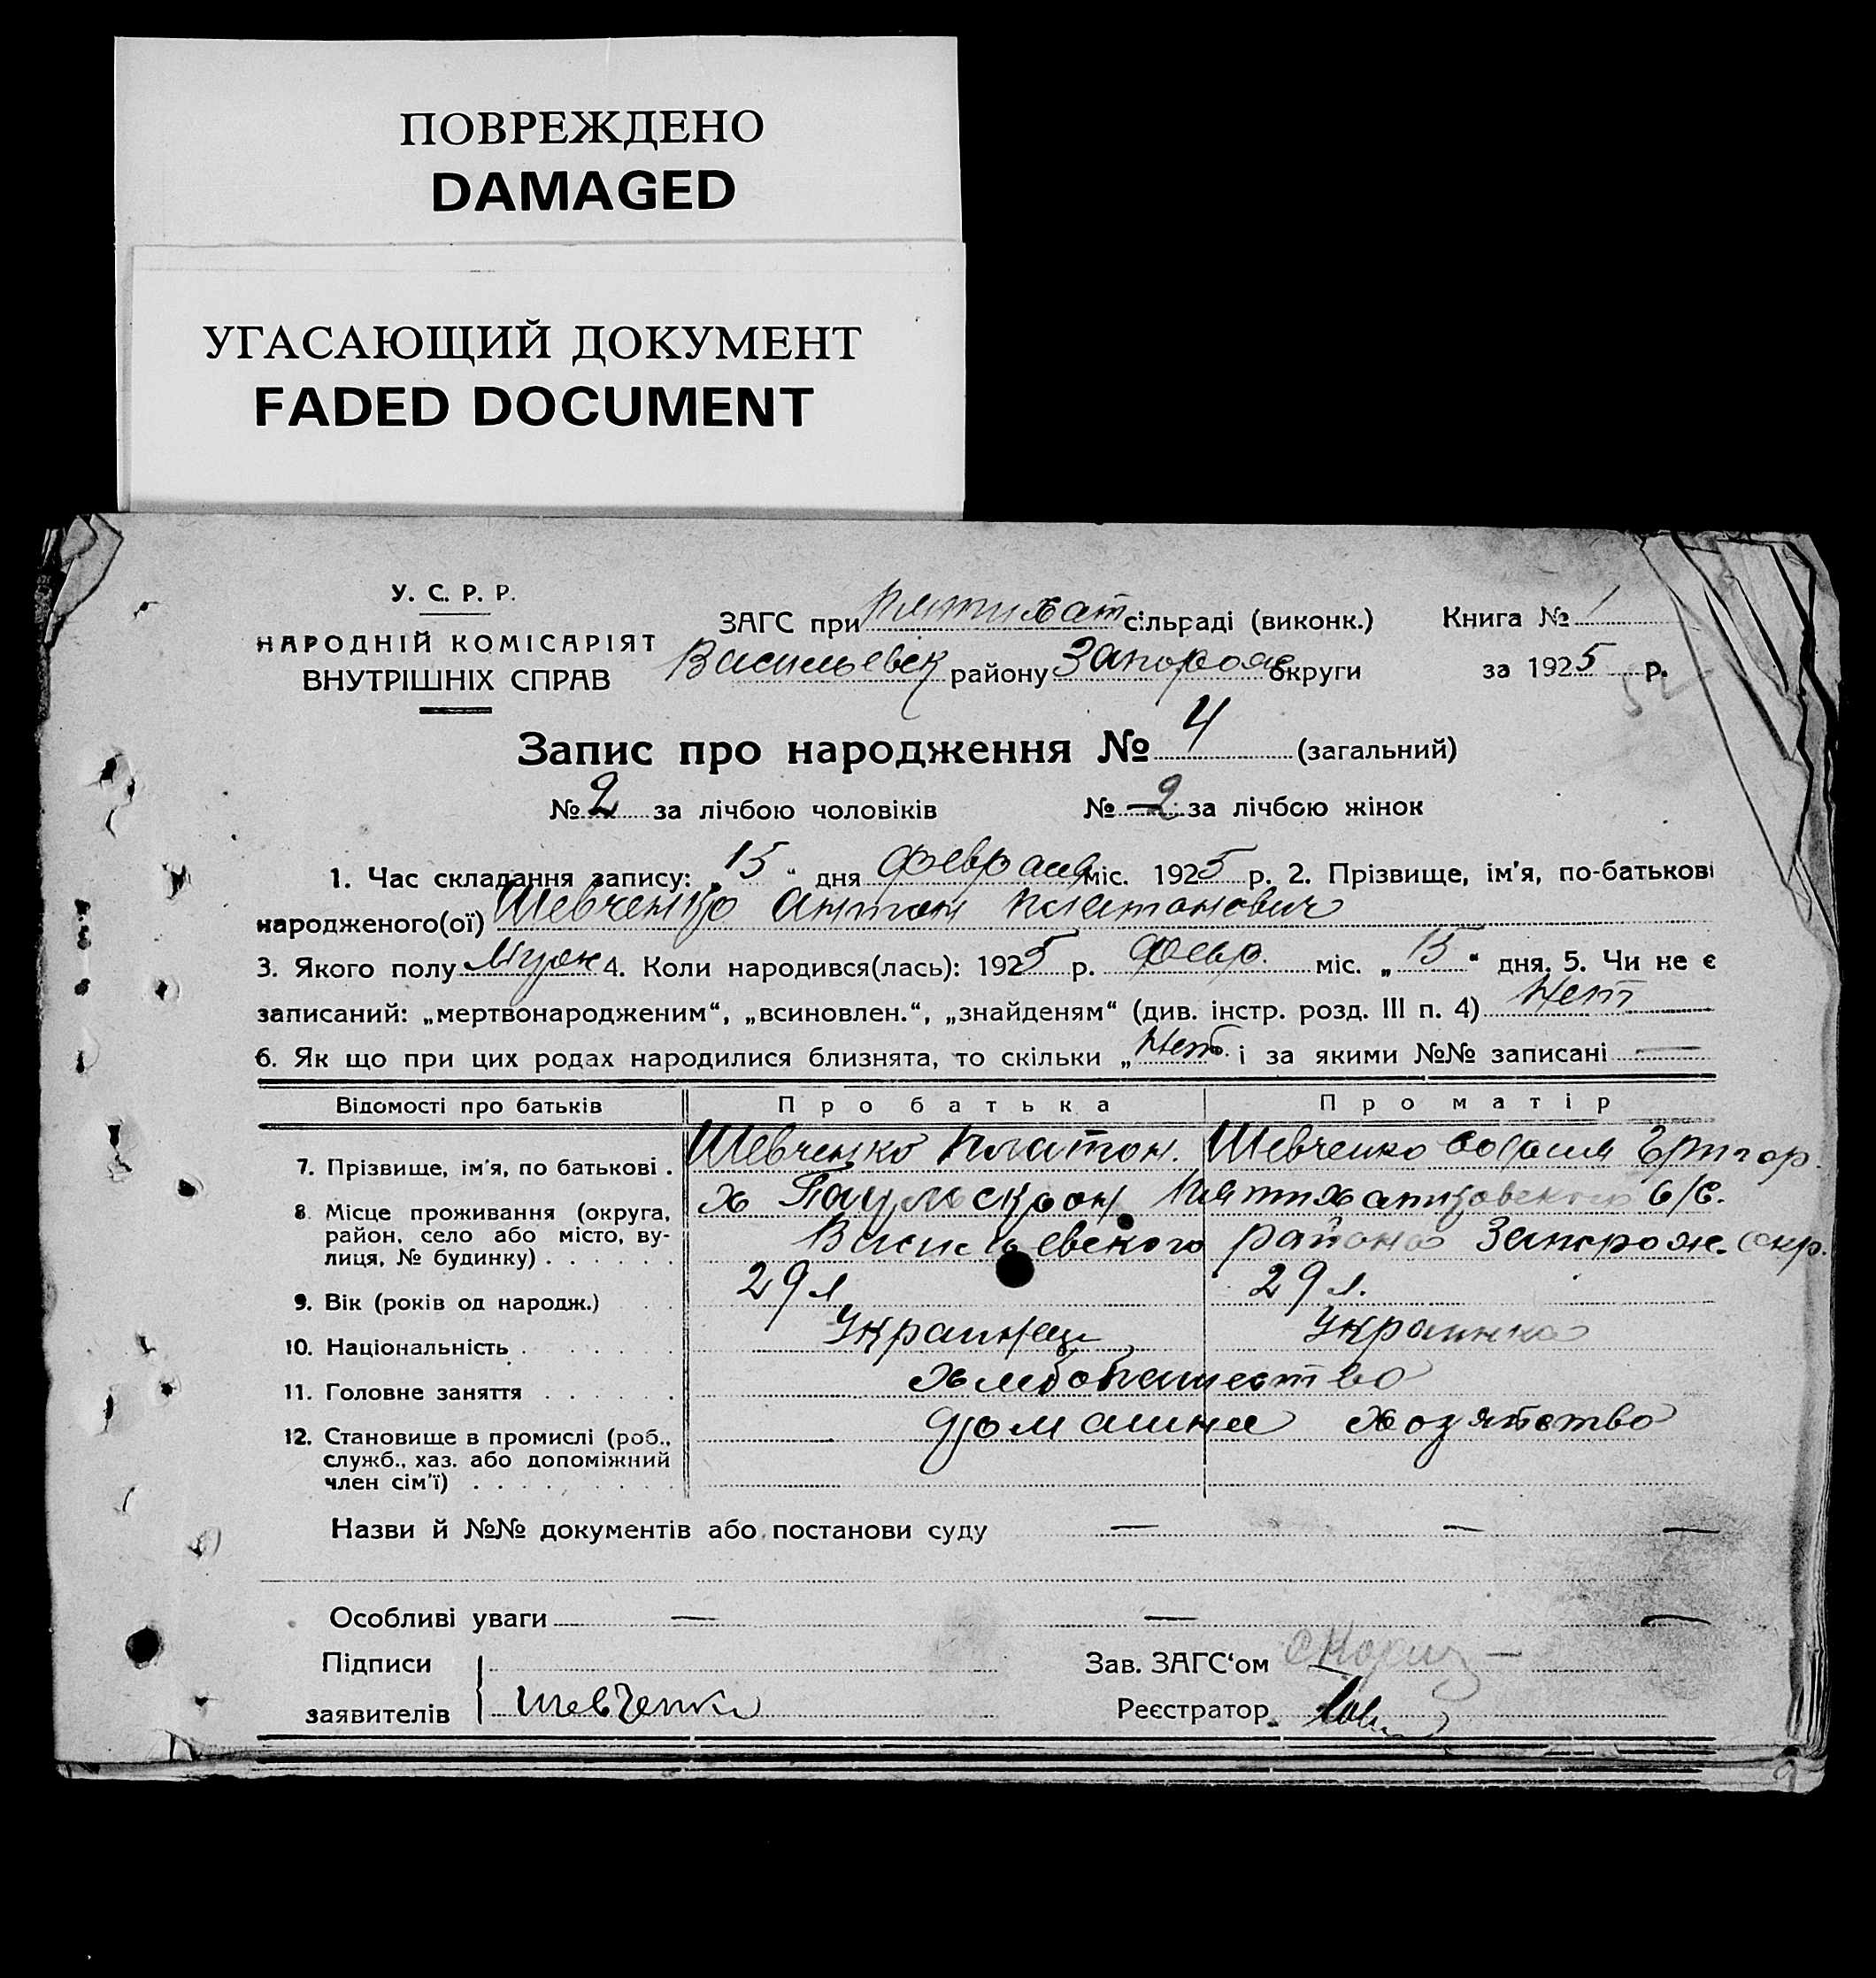 ПОВРЕЖДЕНО
DAMAGED
УГАСАЮЩИЙ ДОКУМЕНТ
FADED DOCUMENT
У. С. Р. Р.
НАРОДНІЙ КОМІСАРІЯТ
ВНУТРІШНІХ СПРАВ
ЗАГС при Пятихат сільраді (виконк.) Книга № 1
Васильевск району Запорож округи за 1925 р.
52
Запис про народження № 4 (загальний)
№ 2 за лічбою чоловіків № 2 за лічбою жінок
1. Час складання запису: „15“ дня февраля міс. 1925 р. 2. Прізвище, ім'я, по-батькові
народженого(ої) Шевченко Антон Платонович
3. Якого полу Муж 4. Коли народився(лась): 1925 р. февр. міс. „15“ дня. 5. Чи не є
записаний: „мертвонародженим“, „всиновлен.“, „знайденям“ (див. інстр. розд. III п. 4) Нет
6. Як що при цих родах народилися близнята, то скільки „Нет“ і за якими №№ записані —
Відомості про батьків Про батька Про матір
7. Прізвище, ім'я, по батькові . Шевченко Платон. Шевченко Софья Григор.
8. Місце проживання (округа, район, село або місто, вулиця, № будинку) . . . . . . х Пятихатковского с/с.
Васильевского района Запорож. окр.
9. Вік (років од народж.) . . 29 л 29 л.
10. Національність . . . . . . Украинец Украинка
11. Головне заняття . . . . . Хлебопашество
12. Становище в промислі (роб., служб., хаз. або допоміжний член сім'ї) . . . . . . . . . Домашнее хозяйство
Назви й №№ документів або постанови суду — — —
Особливі уваги — — —
Підписи Зав. ЗАГС'ом
заявителів Шевченко Реєстратор